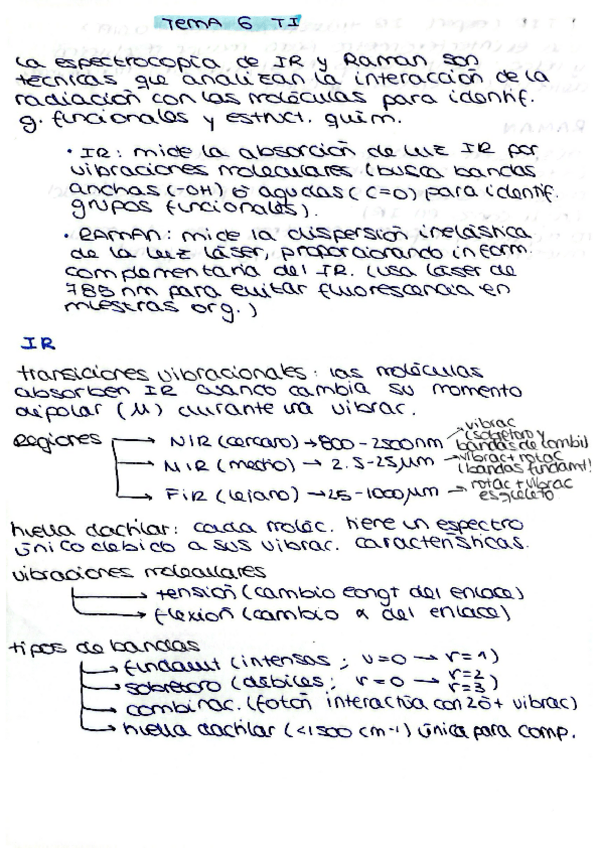 TEMA 6 TI
La espectrocopía de IR y Raman son
técnicas que analizan la interacción de la
radiación con las moléculas para identif.
g. funcionales y estruct. quim.
• IR: mide la absorción de luz IR por
vibraciones moleculares (busca bandas
anchas (-OH) o agudas (C=O) para identif.
grupos funcionales).
• RAMAN: mide la dispersión inelástica
de la luz láser, proporcionando inform.
complementaria del IR. (usa láser de
785 nm para evitar fluorescencia en
muestras org.)
IR
transiciones vibracionales: las moléculas
absorben IR cuando cambia su momento
dipolar (μ) durante una vibrac.
Regiones → NIR (cercano) → 800 - 2500nm → vibrac (sobretoro y bandas de combi)
→ MIR (medio) → 2.5-25μm → vibrac + rotac (bandas fundamt)
→ FIR (lejano) → 25-1000μm → rotac + vibrac esqueleto
huella dactilar: cada moléc. tiene un espectro
único debido a sus vibrac. características.
vibraciones moleculares
→ tensión (cambio longt del enlace)
→ flexión (cambio α del enlace)
tipos de bandas
→ fundamt (intensas; v=0 → v=1)
→ sobretoro (débiles; v=0 → v=2 v=3)
→ combinac. (fotón interactúa con 2 ó + vibrac)
→ huella dactilar (<1500 cm-1) única para comp.